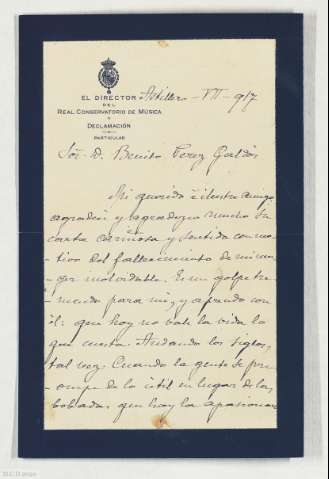 EL DIRECTOR
DEL
REAL CONSERVATORIO DE MÚSICA
Y
DECLAMACIÓN
PARTICULAR
Astillero - VII - 917
Sor. D. Benito Perez Galdós
Mi querido é ilustre amigo
agradecí y agradezco mucho su
carta cariñosa y sentida con mo-
tivo del fallecimiento de mi mu-
ger inolvidable. Es un golpe tre-
mendo para mi, y aprendo con
él: que hoy no vale la vida lo
que cuesta. Andando los siglos,
tal vez. Cuando la gente se preo-
cupe de lo útil en lugar de las
bobadas que hoy la apasionan